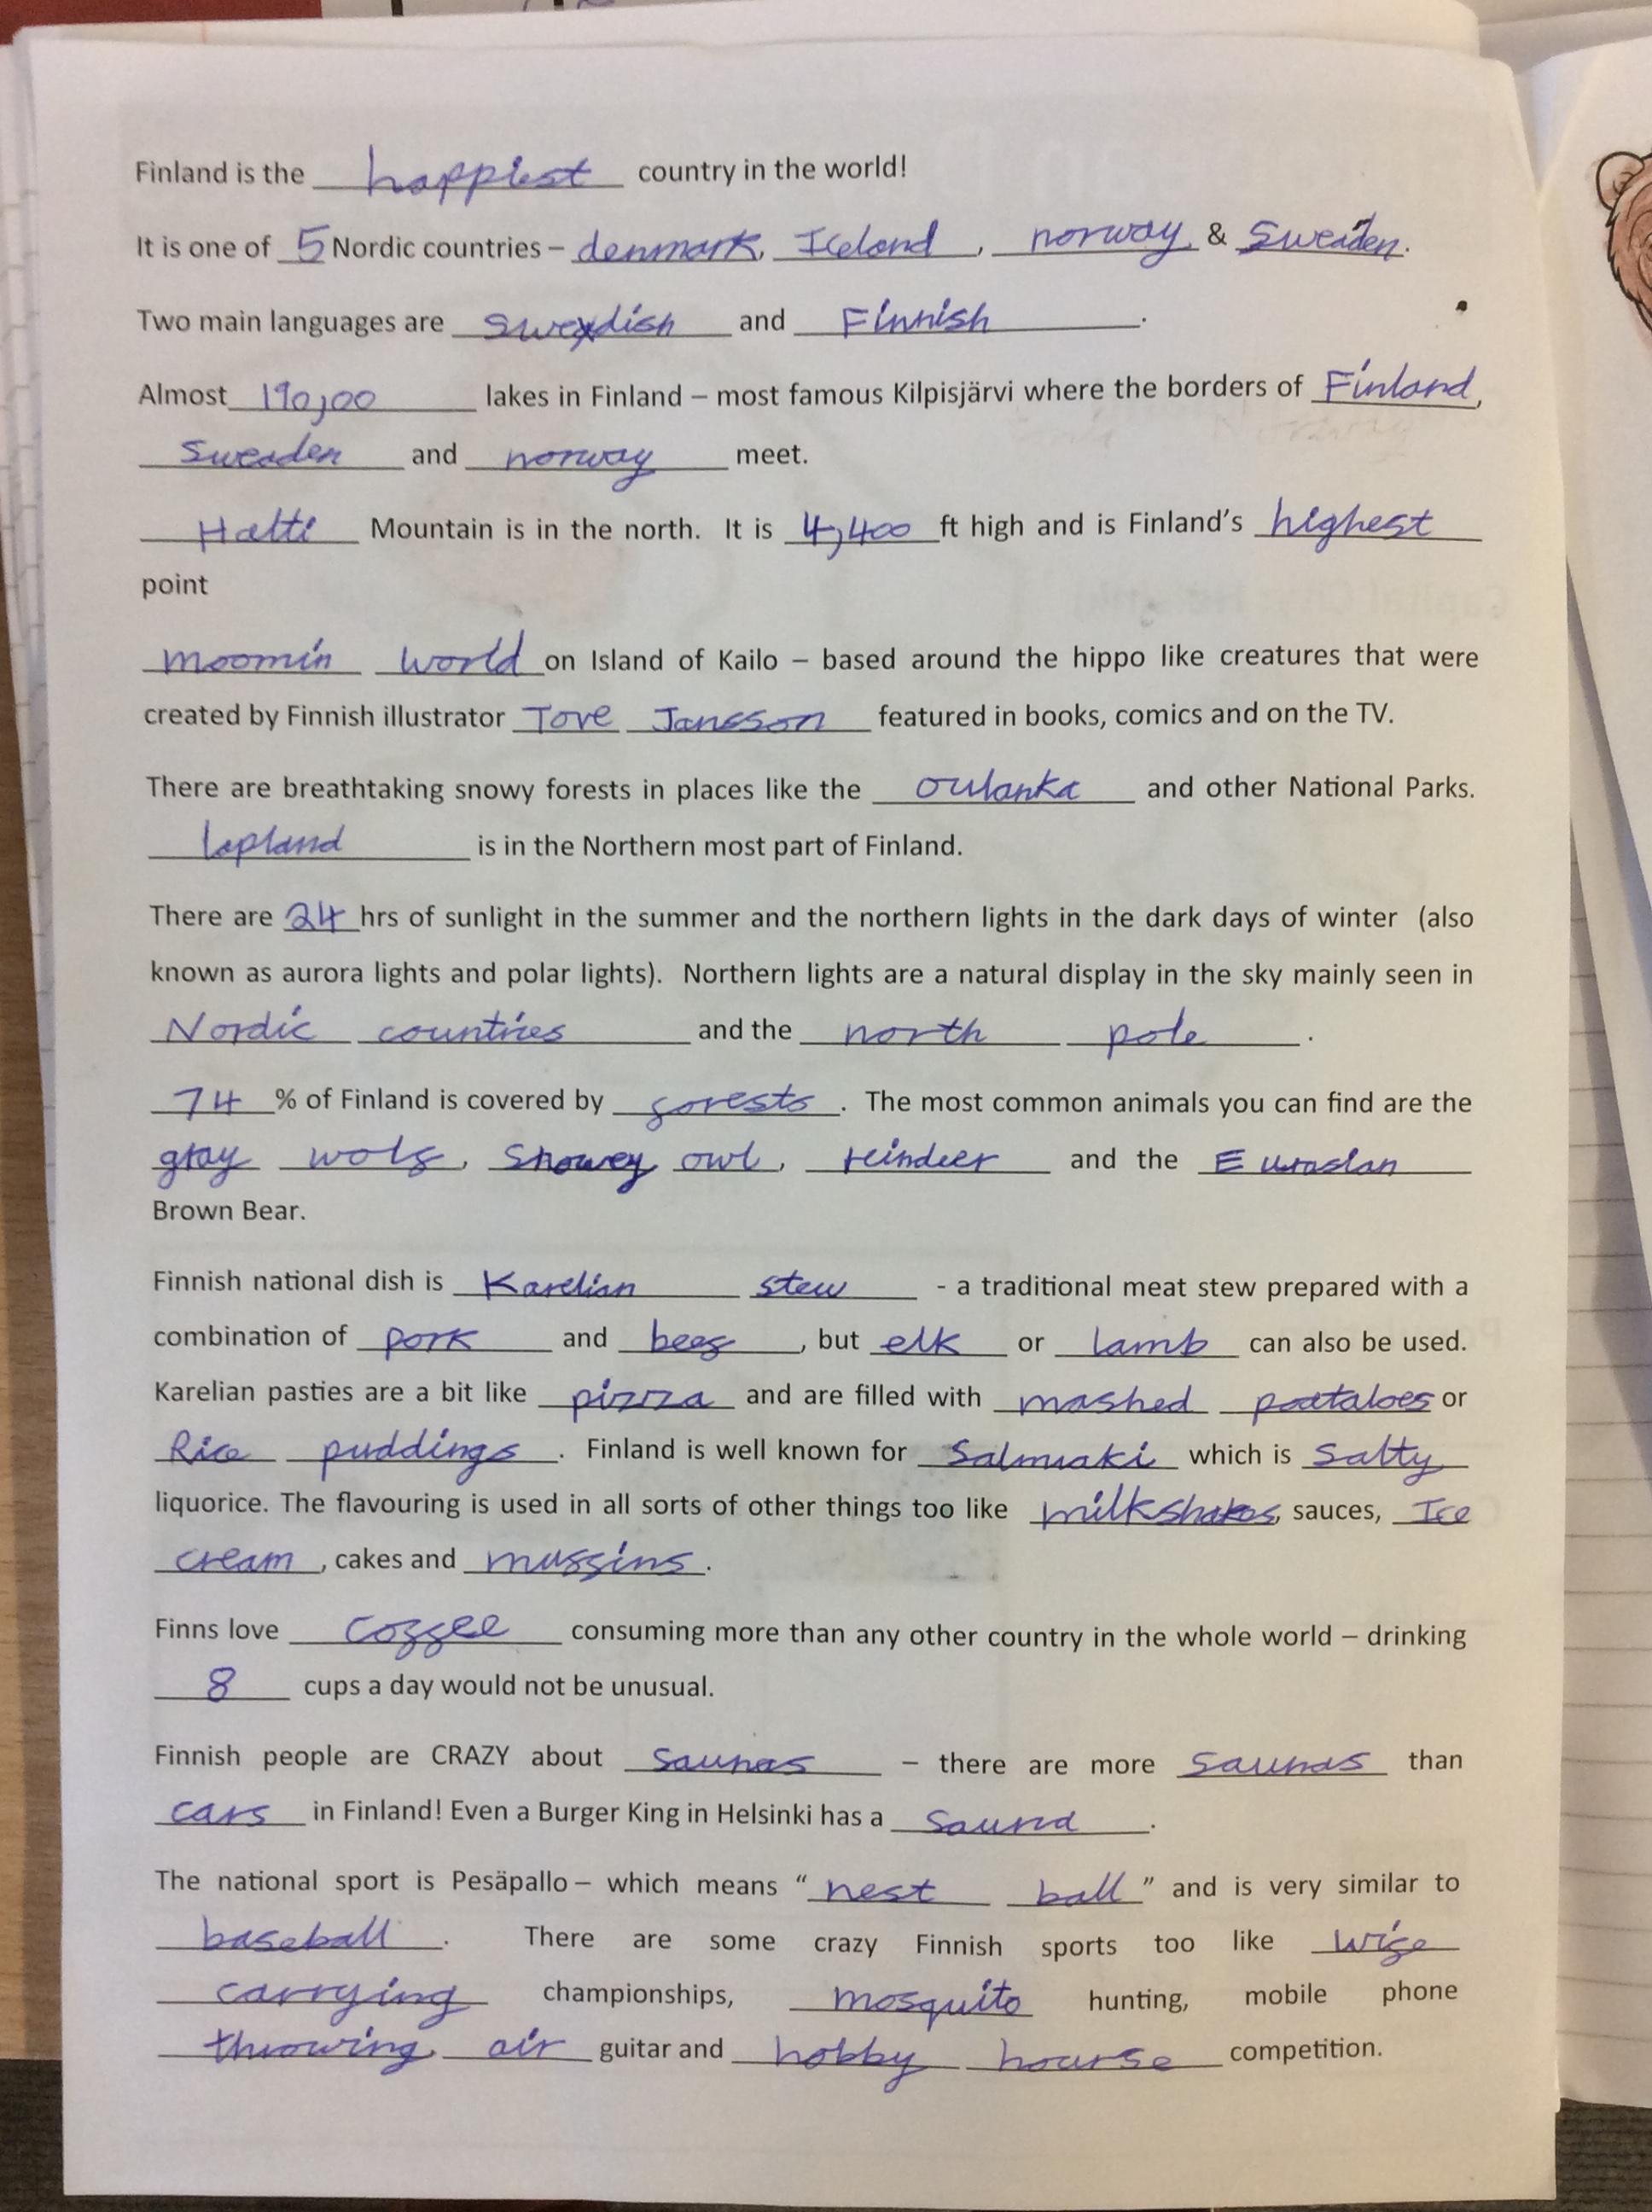 Finland is the happiest country in the world!
It is one of 5 Nordic countries – denmark, Iceland, norway & Sweaden.
Two main languages are swexdish and Finnish.
Almost 190,00 lakes in Finland – most famous Kilpisjärvi where the borders of Finland,
Sweaden and norway meet.
Halti Mountain is in the north. It is 4,400 ft high and is Finland's highest
point
moomin world on Island of Kailo – based around the hippo like creatures that were
created by Finnish illustrator Tove Jansson featured in books, comics and on the TV.
There are breathtaking snowy forests in places like the oulanka and other National Parks.
lapland is in the Northern most part of Finland.
There are 24 hrs of sunlight in the summer and the northern lights in the dark days of winter (also
known as aurora lights and polar lights). Northern lights are a natural display in the sky mainly seen in
Nordic countries and the north pole.
74 % of Finland is covered by forests. The most common animals you can find are the
gray wolf, Snowey owl, reindeer and the Eurasian
Brown Bear.
Finnish national dish is Karelian stew - a traditional meat stew prepared with a
combination of pork and beef, but elk or lamb can also be used.
Karelian pasties are a bit like pizza and are filled with mashed poatatoes or
Rice puddings. Finland is well known for Salmiaki which is Salty
liquorice. The flavouring is used in all sorts of other things too like milkshakes, sauces, Ice
cream, cakes and muffins.
Finns love coffee consuming more than any other country in the whole world – drinking
8 cups a day would not be unusual.
Finnish people are CRAZY about Saunas – there are more saunas than
cars in Finland! Even a Burger King in Helsinki has a Sauna.
The national sport is Pesäpallo – which means "nest ball" and is very similar to
baseball. There are some crazy Finnish sports too like wife
carrying championships, mosquito hunting, mobile phone
throwing, air guitar and hobby hourse competition.